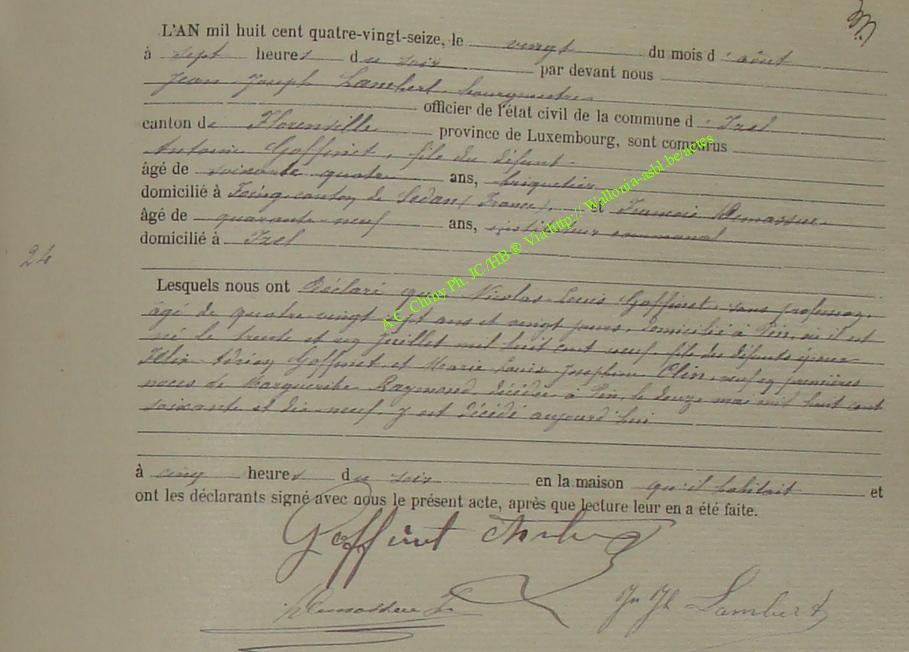 L'AN mil huit cent quatre-vingt-seize, le vingt du mois d'août
à sept heures du soir par devant nous
Jean Joseph Lambert bourgmestre
officier de l'état civil de la commune d'Izel
canton de Florenville province de Luxembourg, sont comparus
Antoine Goffinet, fils du défunt
âgé de soixante quatre ans, briquetier
domicilié à Floing canton de Sedan (France), et François
âgé de quarante neuf ans, communal
domicilié à Izel
24
Lesquels nous ont déclaré que Nicolas Louis Goffinet, sans profession,
âgé de quatre vingt sept ans et vingt jours, domicilié à Pin, où il est
né le trente et un juillet mil huit cent neuf, fils des défunts époux
Goffinet, et Marie Louise Josephine veuf en premières
noces de Marguerite Raymond, décédée à Pin, le douze mai mil huit cent
soixante et dix neuf y est décédé aujourd'hui
à cinq heures du soir en la maison qu'il habitait et
ont les déclarants signé avec nous le présent acte, après que lecture leur en a été faite.
Goffinet
Lambert
A.C. Chiny Ph. JC/HB ® Via http:// Wallonia-asbl.be/actes